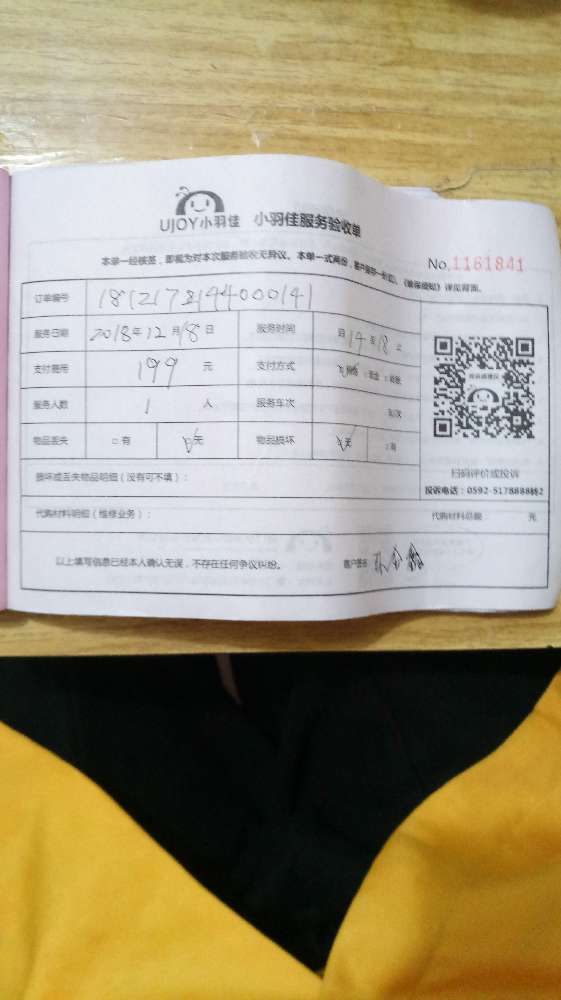 UJOY小羽佳 小羽佳服务验收单
本单一经核签，即视为对本次服务验收无异议。本单一式两份，
No.1161841
订单编号 1812178144000141
服务日期 2018年12月18日 服务时间 自14至18止
支付费用 199 元 支付方式
服务人数 1 人 服务车次 车/次
物品丢失 □有 □无 物品损坏 □无 □有
损坏或丢失物品明细（没有可不填）：
扫码评价或投诉
投诉电话：0592-5178888转2
代购材料明细（维修业务）： 代购材料总额 元
以上填写信息已经本人确认无误，不存在任何争议纠纷。 客户签名：